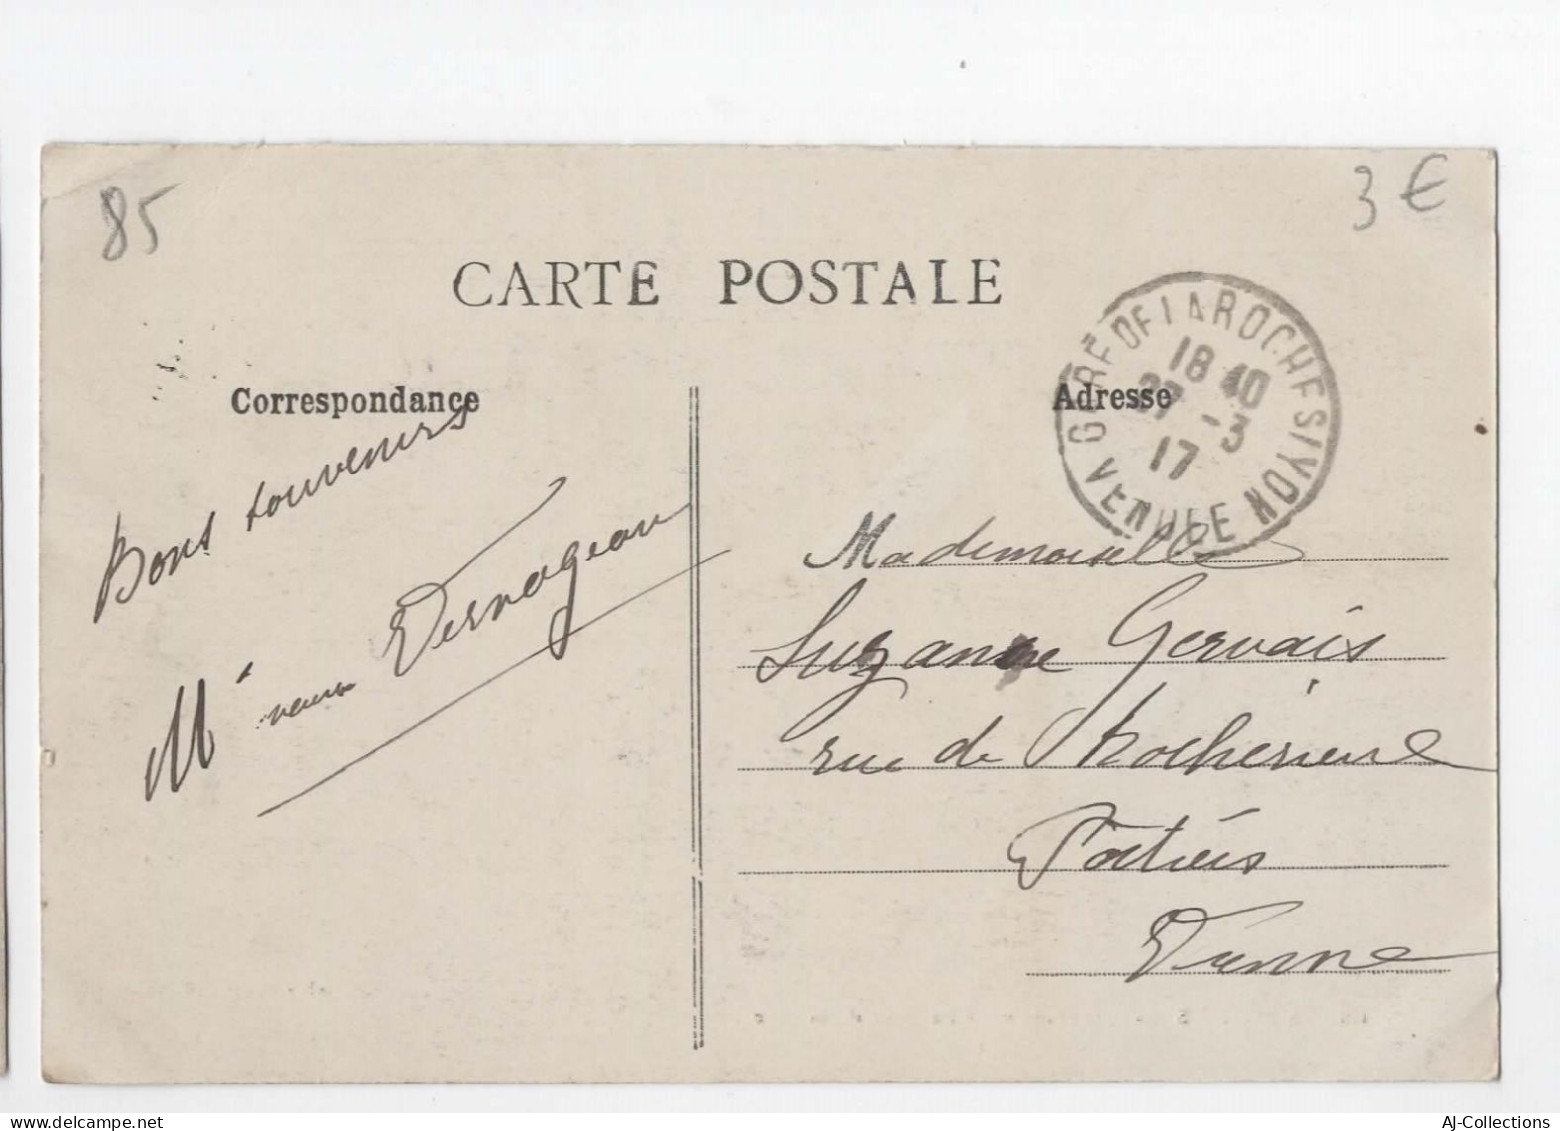 85
3 €
CARTE POSTALE
GARE DE LA ROCHE S IYON
18 40
27 - 3
17
VENDEE
Correspondance
Adresse
Bons souvenirs
Mᵉ veuve Vernageau
Mademoiselle
Suzanne Gervais
rue de Rochereuil
Poitiers
Vienne
AJ-Collections